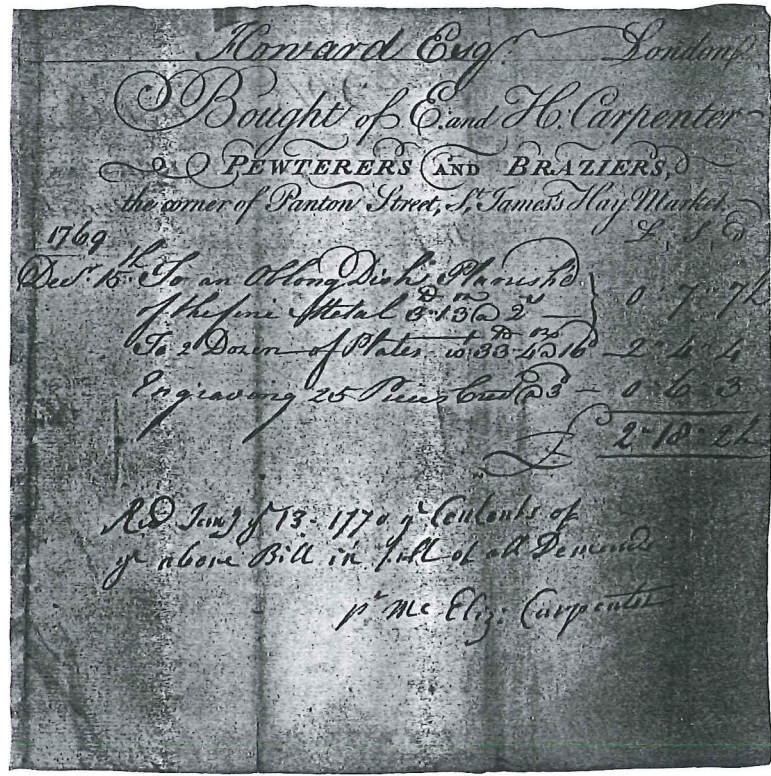 Howard Esqr. London
Bought of E. and H. Carpenter
PEWTERERS AND BRAZIERS,
the corner of Panton Street, St. James's Hay Market.
L S D
1769
Decr. 15th To an Oblong Dish Planish'd
of the fine Metal 3 13 @ 2s 0 7 7½
To 2 Dozen of Plates wt 33 4 @ 16 2 4 4
Engraving 25 Pieces Crest @ 3d 0 6 3
£ 2 18 2½
Recd Jany ye 13 1770 ye Contents of
ye above Bill in full of all Demands
pr Me Eliz: Carpenter